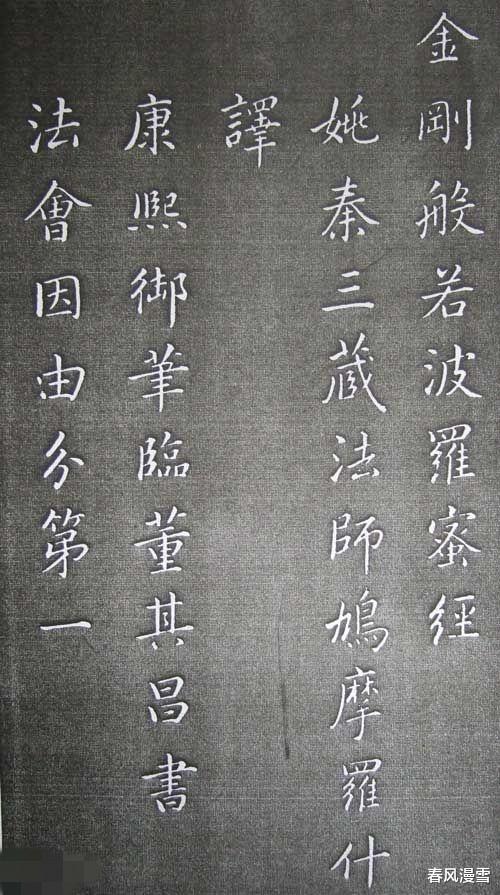 金剛般若波羅蜜經
姚秦三蔵法師鳩摩羅什
譯
康熙御筆臨董其昌書
法會因由分第一
春风漫雪